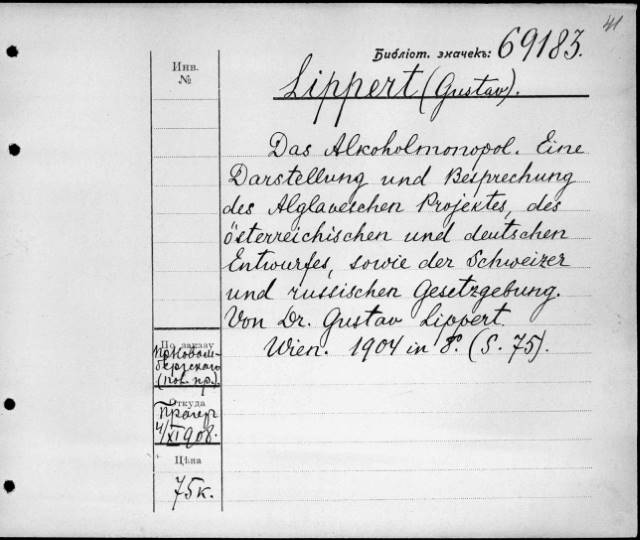 41
Библіот. значекъ: 69183.
Инв.
№
Lippert (Gustav).
Das Alkoholmonopol. Eine
Darstellung und Besprechung
des Alglaveschen Projektes, des
österreichischen und deutschen
Entwurfes, sowie der Schweizer
und russischen Gesetzgebung.
Von Dr. Gustav Lippert.
Wien. 1904 in 8°. (S. 75).
По заказу
(пов. пр.).
Откуда
Прагеръ
4/XI 908.
Цѣна
75к.